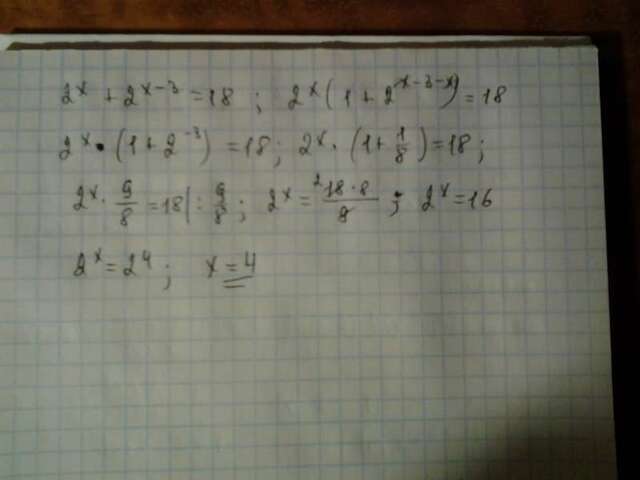 2^x + 2^{x-3} = 18 ; 2^x (1 + 2^{x-3-x}) = 18
2^x • (1 + 2^{-3}) = 18 ; 2^x · (1 + 1/8) = 18 ;
2^x · 9/8 = 18 | : 9/8 ; 2^x = ^2 18·8/9 ; 2^x = 16
2^x = 2^4 ; x = 4